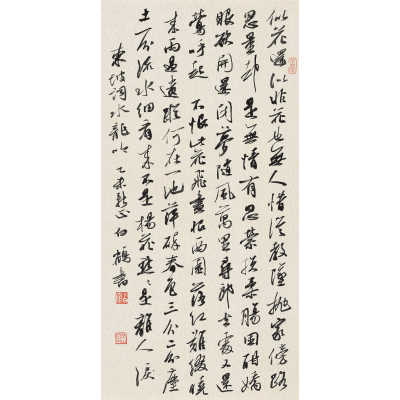 似花還似非花也無人惜從教墜拋家傍路
思量却是無情有思縈損柔腸困酣嬌
眼欲開還閉夢隨風萬里尋郎去處又還
鶯呼起 不恨此花飛盡恨西園落紅難綴曉
來雨過遺蹤何在一池萍碎春色三分二分塵
土一分流水細看來不是楊花點〻是離人淚
東坡詞水龍吟 乙未新正白鶴書